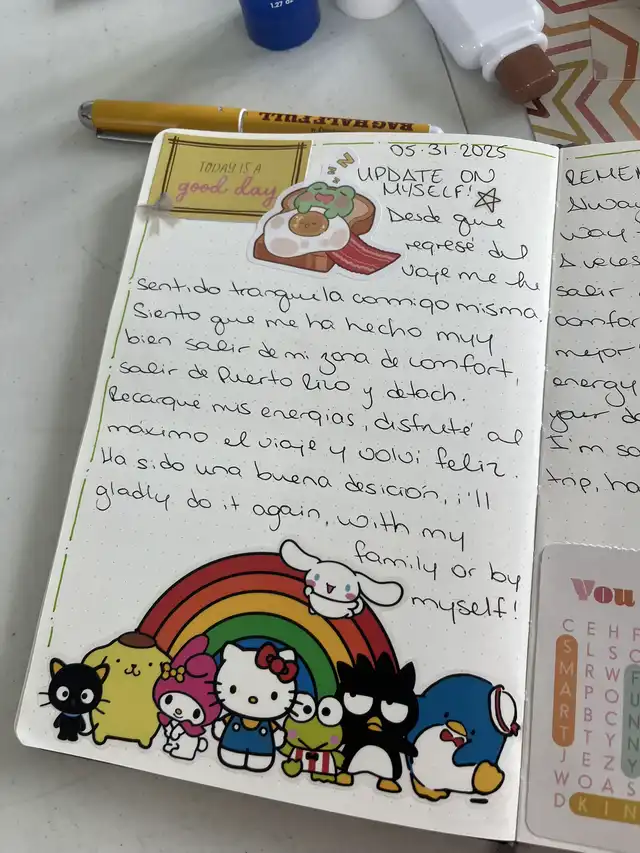 1.27 oz
BAG HALF FULL
TODAY IS A
good day
z z z
05.31.2025
UPDATE ON
MYSELF!
Desde que
regresé del
viaje me he
sentido tranquila conmigo misma.
Siento que me ha hecho muy
bien salir de mi zona de comfort,
salir de Puerto Rico y detach.
Recarque mis energías, disfruté al
máximo el viaje y volví feliz.
Ha sido una buena desición, i'll
gladly do it again, with my
family or by
myself!
REMEM
Alway
way
A veces
salir
comfor
mejor
energy
your da
I'm so
trip, ha
You
C E H F
S L S C
M R W F
A P O U
R B C N
T T Y N
J E Z Y
W O A S
D K I N